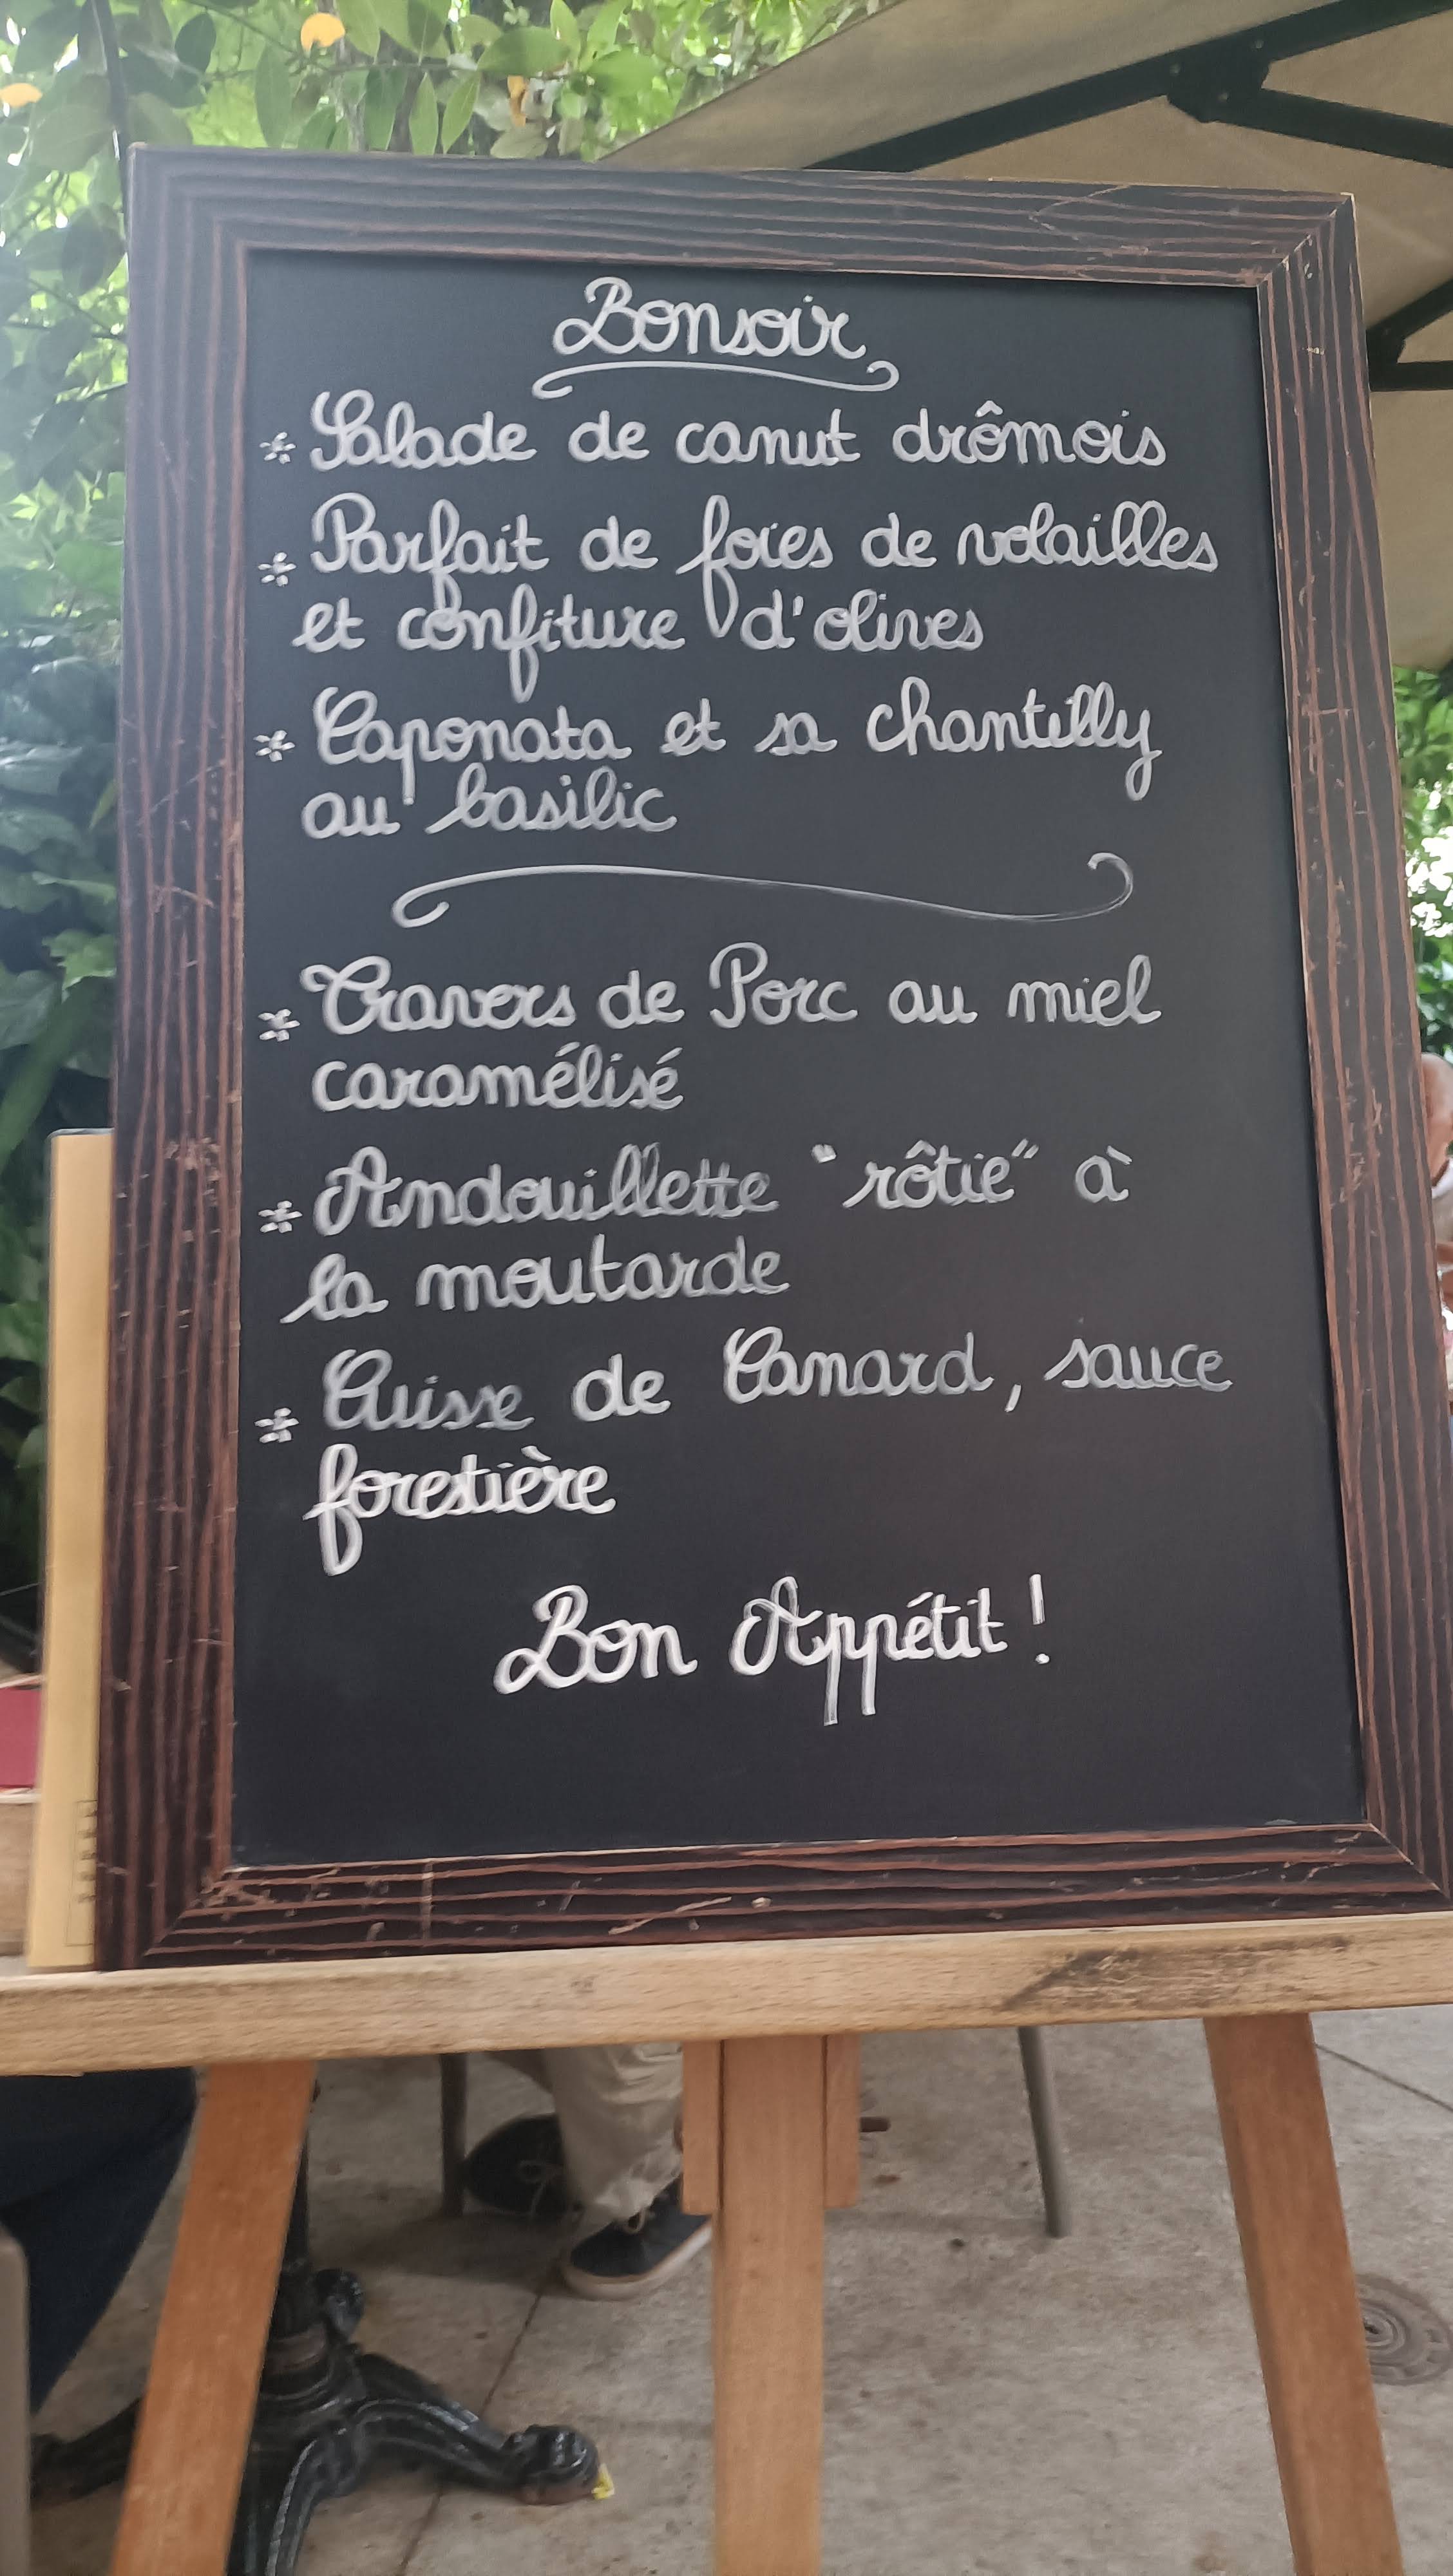 Bonsoir
* Salade de canut drômois
* Parfait de foies de volailles
et confiture d'olives
* Caponata et sa chantilly
au basilic
* Travers de Porc au miel
caramélisé
* Andouillette "rôtie" à
la moutarde
* Cuisse de Canard, sauce
forestière
Bon Appétit !